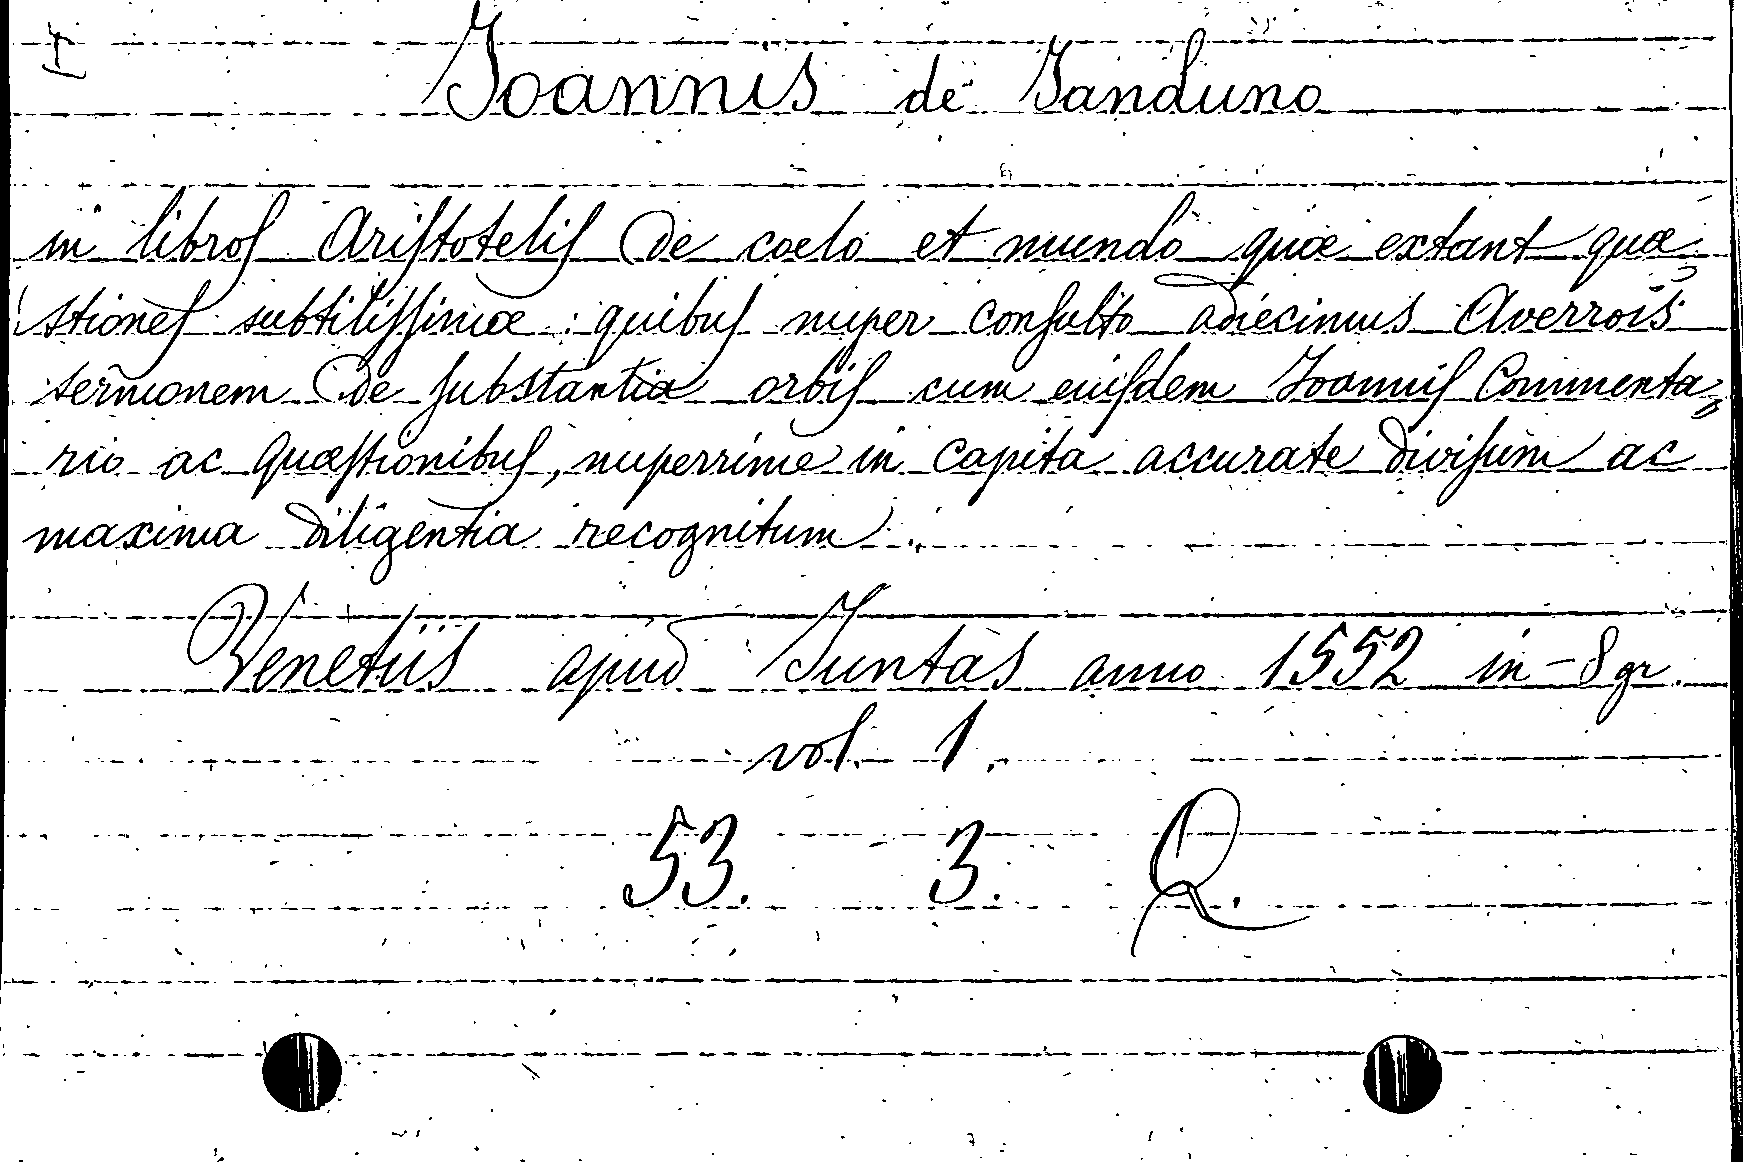 I
Joannis de Janduno
in libroſ Ariſtoteliſ De coelo et mundo quæ extant quæ-
stioneſ subtiliſſimæ: quibuſ nuper conſulto adiecimus Averrois
sermonem De ſubstantia orbiſ cum euiſdem Joanniſ Commenta=
rio ac quæſtionibuſ, nuperrime in capita accurate diviſum ac
maxima diligentia recognitum.
Venetiis apud Juntas anno 1552 in-8 gr.
vol. 1.
53. 3. Q.